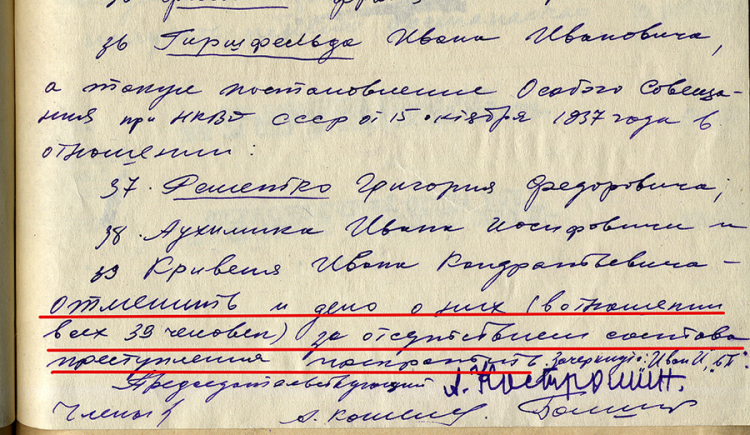 36 Гиршфельда Ивана Ивановича,
а также постановление Особого Совеща-
ния при НКВД СССР от 15 октября 1937 года в
отношении:
37. Фоменко Григория Федоровича;
38. Лухимика Ивана Иосифовича и
39 Кривеня Ивана Кондратьевича –
отменить и дело о них (в отношении
всех 39 человек) за отсутствием состава
преступления прекратить. Зачеркнуто: Иван И,
Председательствующий А. Костромин.
Члены